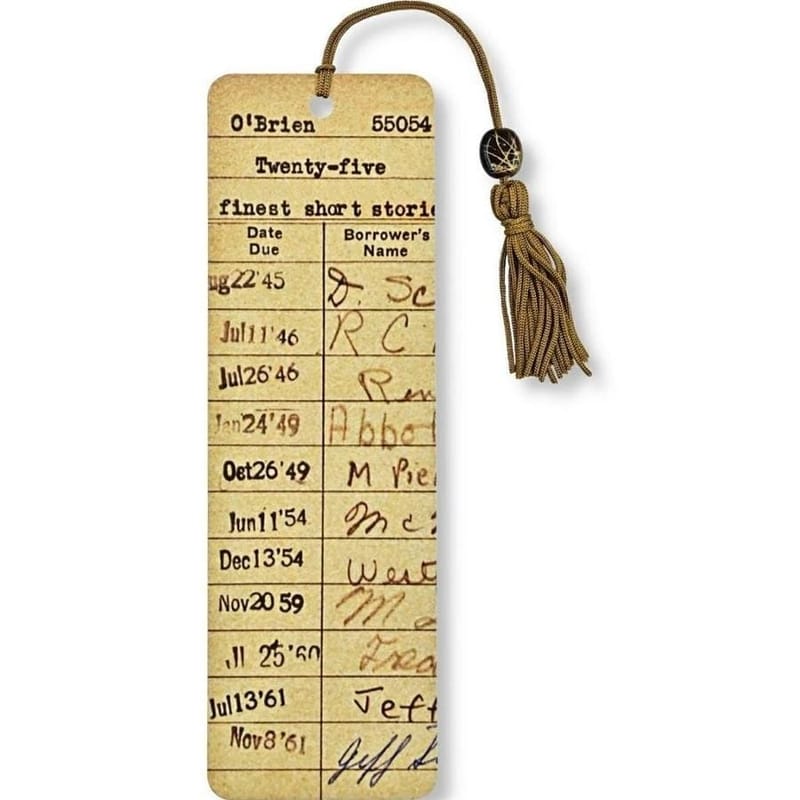 O'Brien 55054
Twenty-five
finest short storie
Date Due Borrower's Name
ug22'45 D. Sc
Jul11'46 R C
Jul26'46 Ren
Jan24'49 Abbot
Oct26'49 M Pie
Jun11'54 Mc
Dec13'54 West
Nov20 59 M
Jl 25'60 Fred
Jul13'61 Jeff
Nov8'61 Jeff S